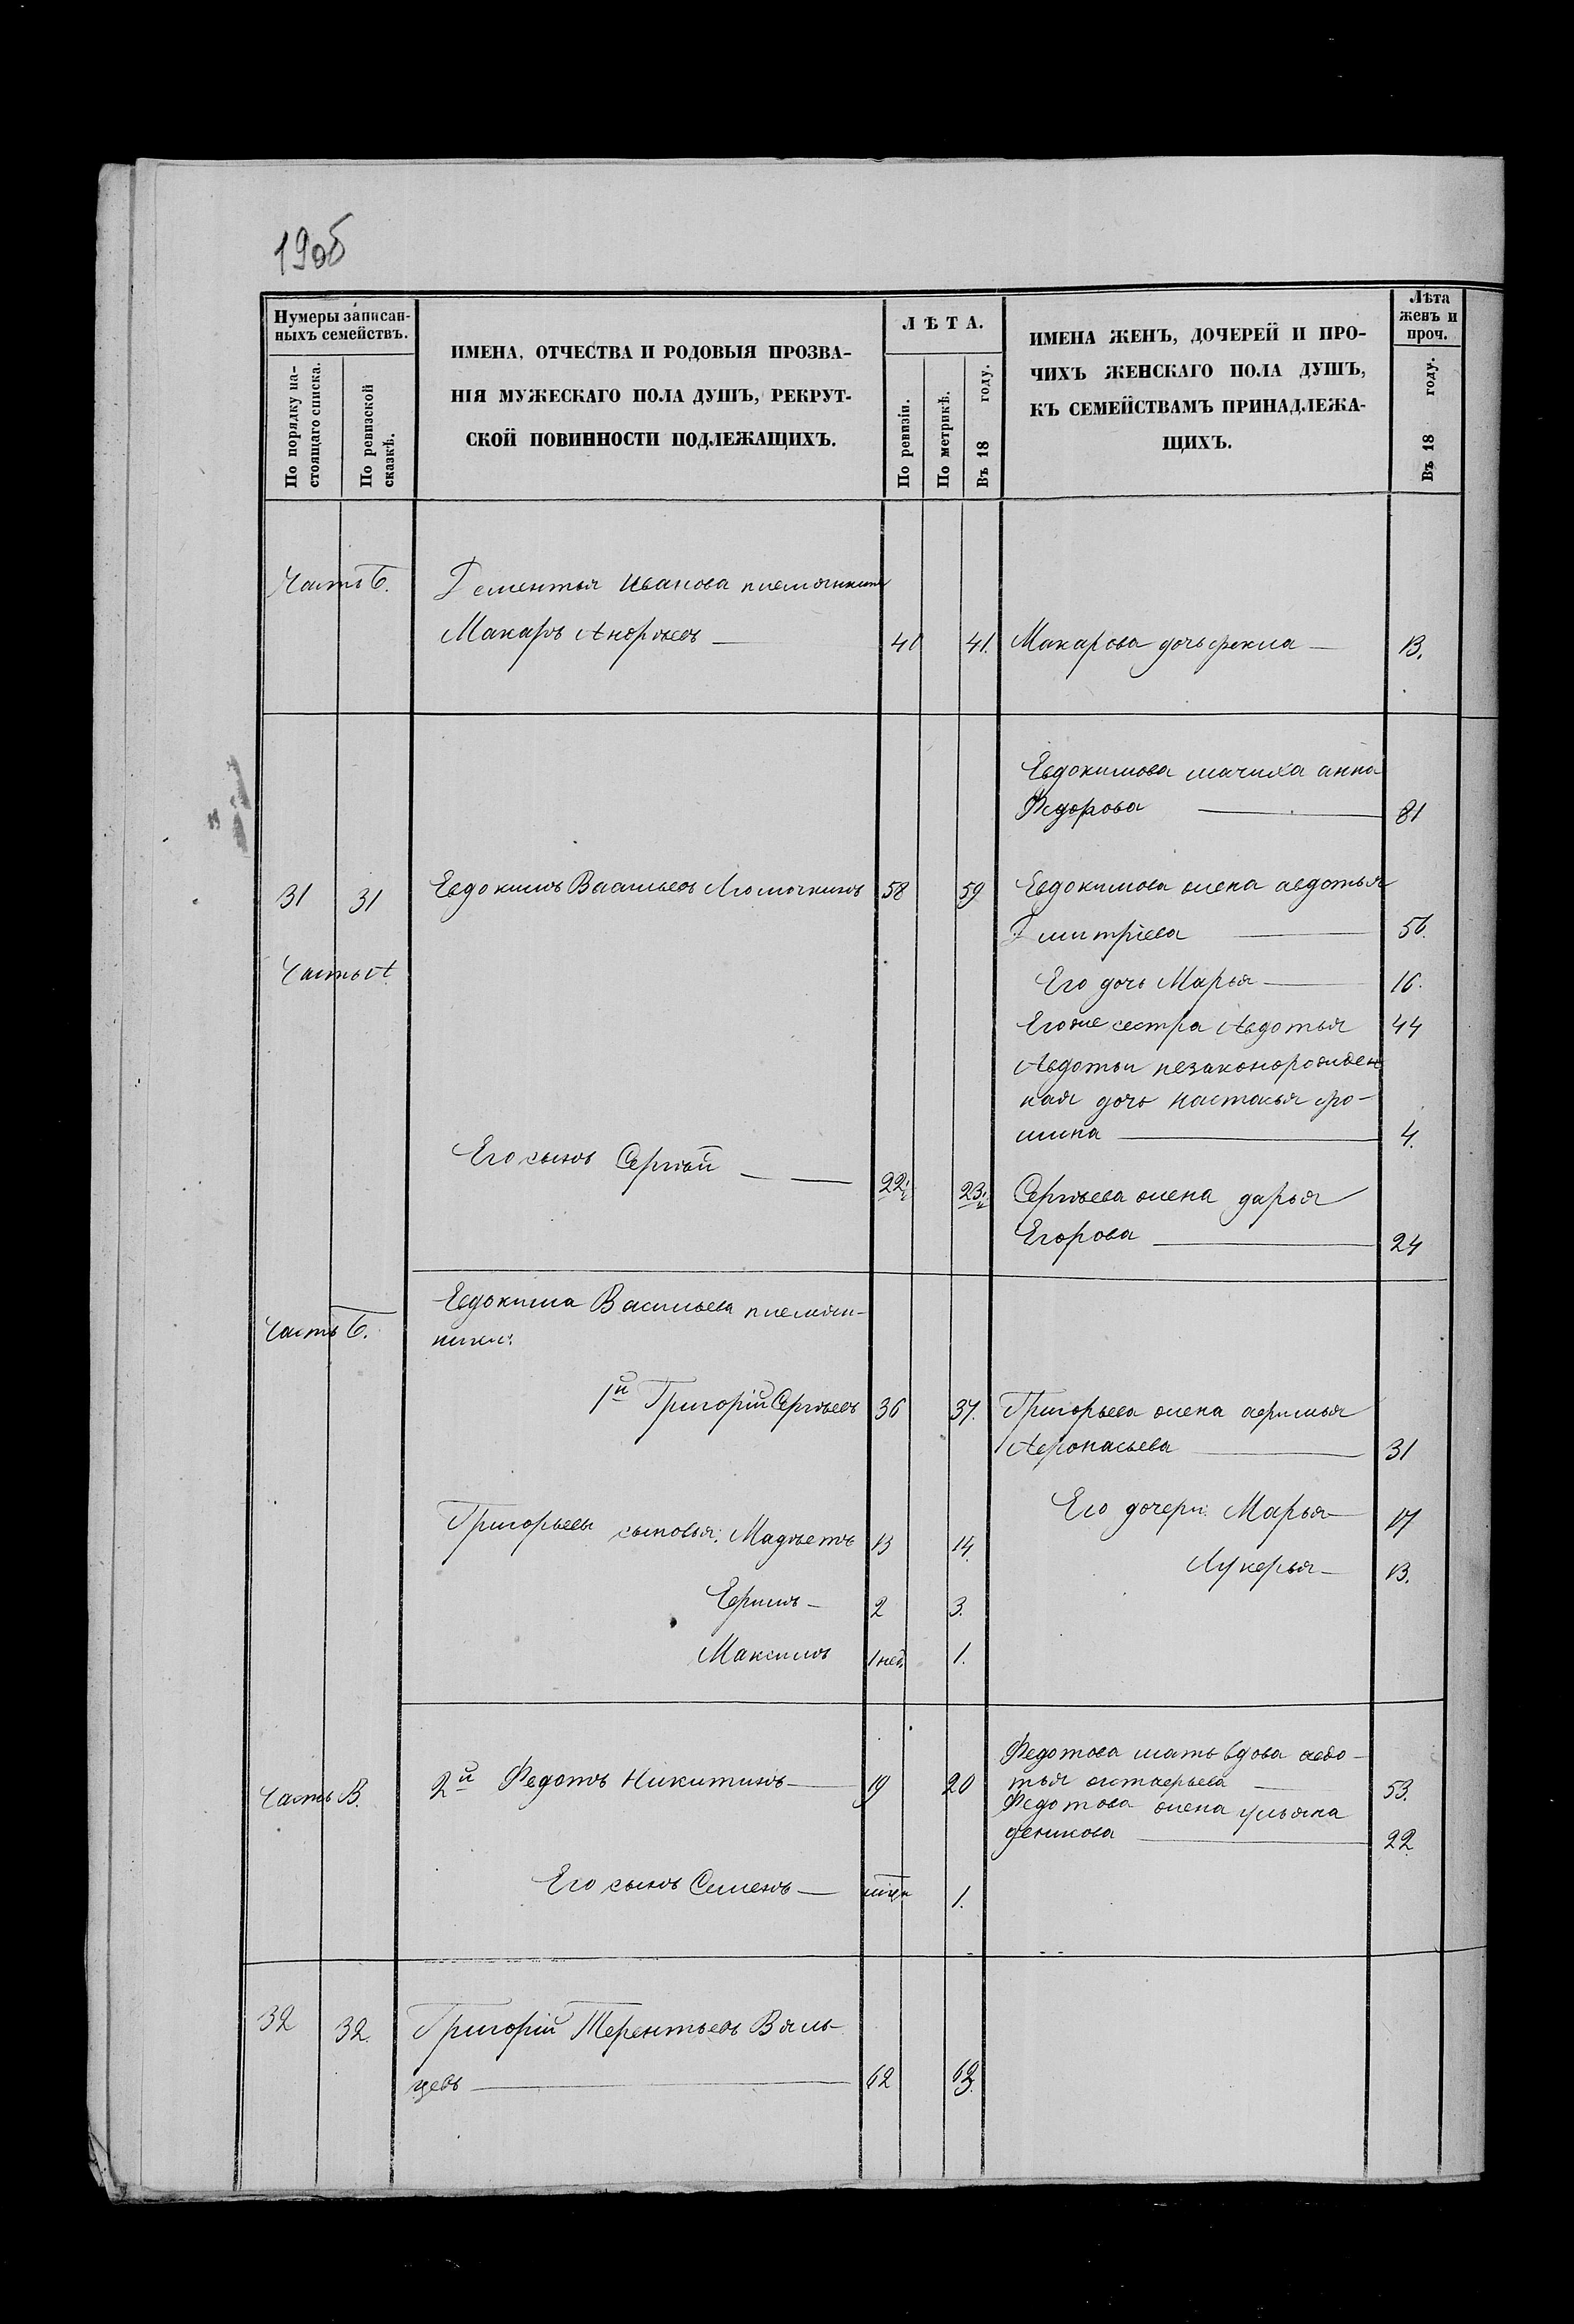 1906
Нумеры записан-
ныхъ семействъ.
По порядку на-
стоящаго списка.
По ревизской
сказкѣ.
ИМЕНА, ОТЧЕСТВА И РОДОВЫЯ ПРОЗВА-
НІЯ МУЖЕСКАГО ПОЛА ДУШЪ, РЕКРУТ-
СКОЙ ПОВИННОСТИ ПОДЛЕЖАЩИХЪ.
ЛѢТА.
По ревизіи.
По метрикѣ.
Въ 18 году.
ИМЕНА ЖЕНЪ, ДОЧЕРЕЙ И ПРО-
ЧИХЪ ЖЕНСКАГО ПОЛА ДУШЪ,
КЪ СЕМЕЙСТВАМЪ ПРИНАДЛЕЖА-
ЩИХЪ.
Лѣта
женъ и
проч.
Въ 18 году.
Часть Б. Дементья Иванова племянникъ
Макаръ Андрѣевъ — 40 41. Макарова дочь фекла — 13.
Евдокимова мачиха анна
Федорова — 81
31 31 Евдокимъ Васильевъ 58 59 Евдокимова жена авдотья
Дмитріева — 56.
Часть А.
Его дочь Марья — 16.
Его же сестра Авдотья 44
Авдотьи незаконорожден
ная дочь настасья фо-
мина — 4.
Его сынъ Сергѣй — 22½ 23½ Сергѣева жена дарья
Егорова — 24
Часть Б. Евдокима Васильева племян-
ники:
1й Григорій Сергѣевъ 36 37. Григорьева жена афимья
Афонасьева — 31
Григорьевы сыновья: 13 14.
Его дочери: Марья — 17
Лукерья — 13.
Ефимъ — 2 3.
Максимъ 1 нед. 1.
Часть В. 2й Федотъ Никитинъ — 19 20
Федотова мать вдова авдо-
тья — 53.
Федотова жена ульяна
— 22
Его сынъ Семенъ — 1.
32 32. Григорій Терентьевъ Вяль-
цевъ — 62 63.